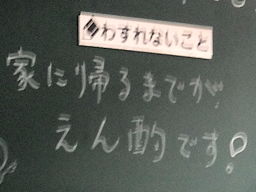 わすれないこと
家に帰るまでが
えん酌です。